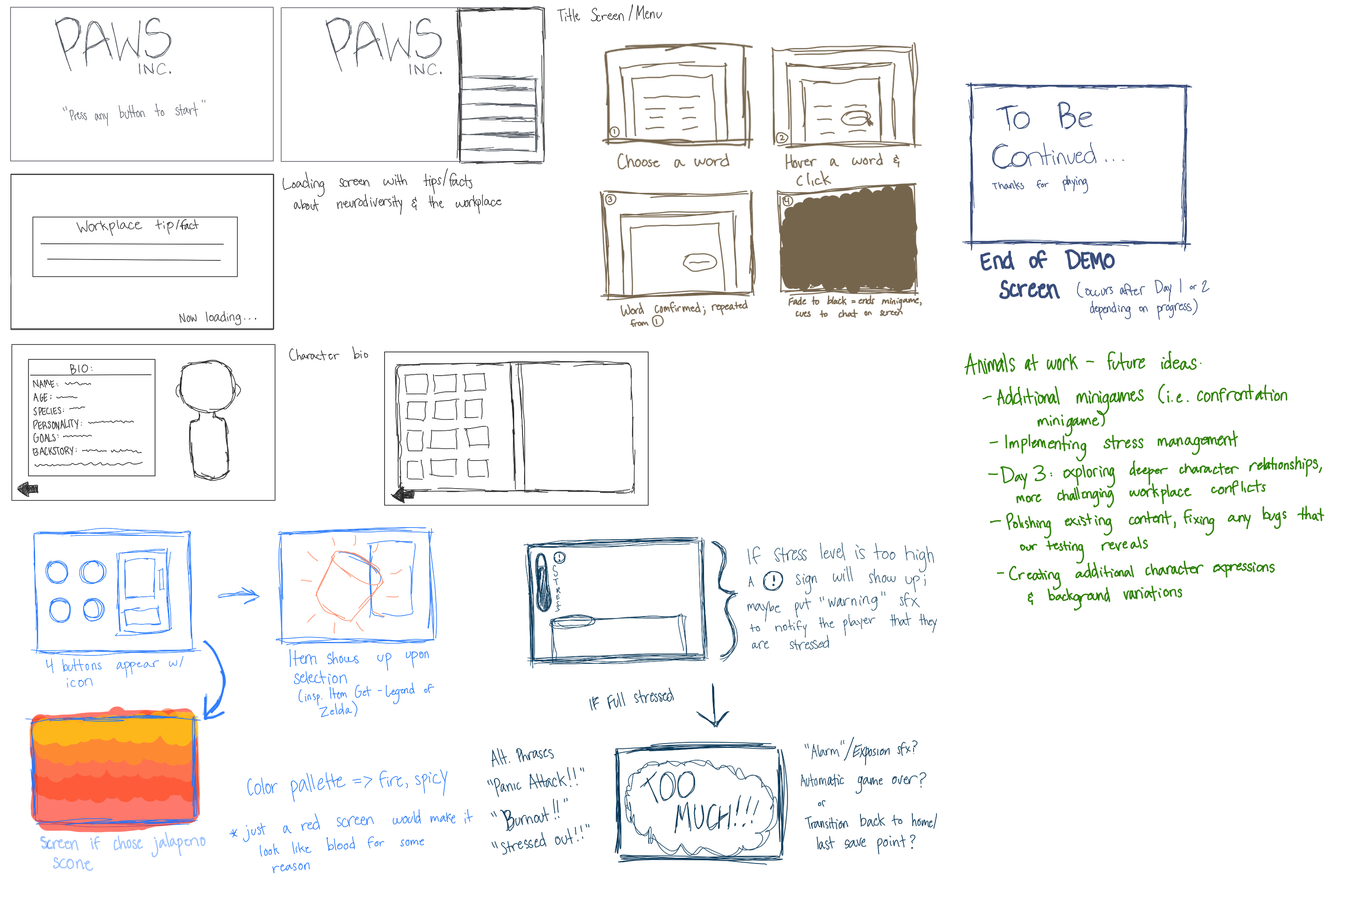 PAWS
INC.
"Press any button to start"
PAWS
INC.
Title Screen/Menu
Loading screen with tips/facts
about neurodiversity & the workplace
Workplace tip/fact
Now loading...
BIO:
NAME:
AGE:
SPECIES:
PERSONALITY:
GOALS:
BACKSTORY:
Character bio
1
Choose a word
2
Hover a word &
click
3
Word comfirmed; repeated
from 1
4
Fade to black = ends minigame,
cues to chat on screen
To Be
Continued...
Thanks for playing
End of DEMO
Screen (occurs after Day 1 or 2
depending on progress)
Animals at work - future ideas:
- Additional minigames (i.e. confrontation
minigame)
- Implementing stress management
- Day 3: exploring deeper character relationships,
more challenging workplace conflicts
- Polishing existing content, fixing any bugs that
our testing reveals
- Creating additional character expressions
& background variations
4 buttons appear w/
icon
Item shows up upon
selection
(insp. Item Get - Legend of
Zelda)
Screen if chose jalapeno
scone
Color pallette => fire, spicy
* just a red screen would make it
look like blood for some
reason
!
IF stress level is too high
A ! sign will show up;
maybe put "warning" sfx
to notify the player that they
are stressed
IF Full stressed
Alt. Phrases
"Panic Attack!!"
"Burnout!!"
"Stressed out!!"
TOO
MUCH!!!
"Alarm"/Exposion sfx?
Automatic game over?
or
Transition back to home/
last save point?